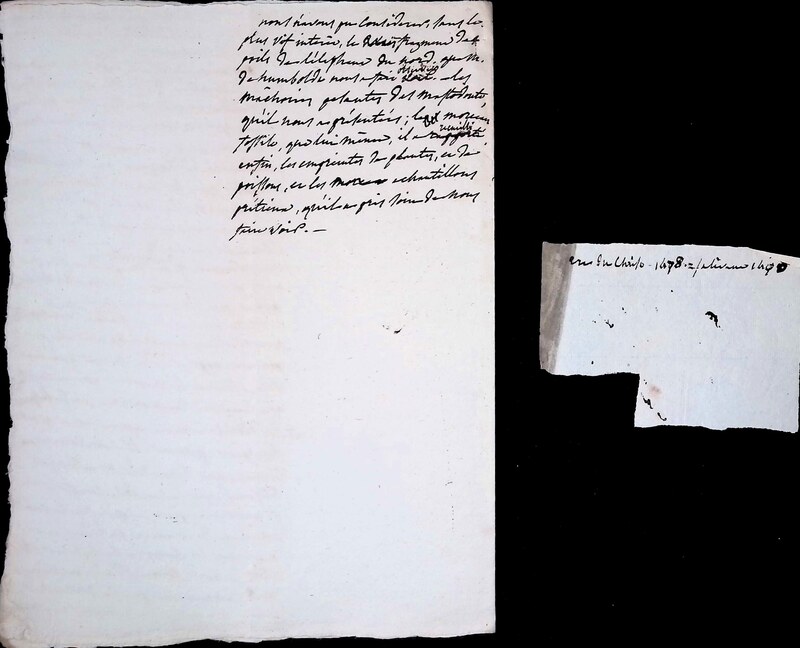 nous n'avons pu considerer, sans le
plus vif interêt, le fragment de
poils de l'éléphant du nord. que M.
de humbolde nous a fait observer
voir. — les
machoires pesantes des mastodonte,
qu'il nous a présentées; le bel morceau
fossile, que lui même, il a recueilli
rapporté
enfin, les empreintes de plantes, et de
poissons, et les echantillons
prétieux, qu'il a pris soin de nous
faire voir. —
du Christo. 1498. =